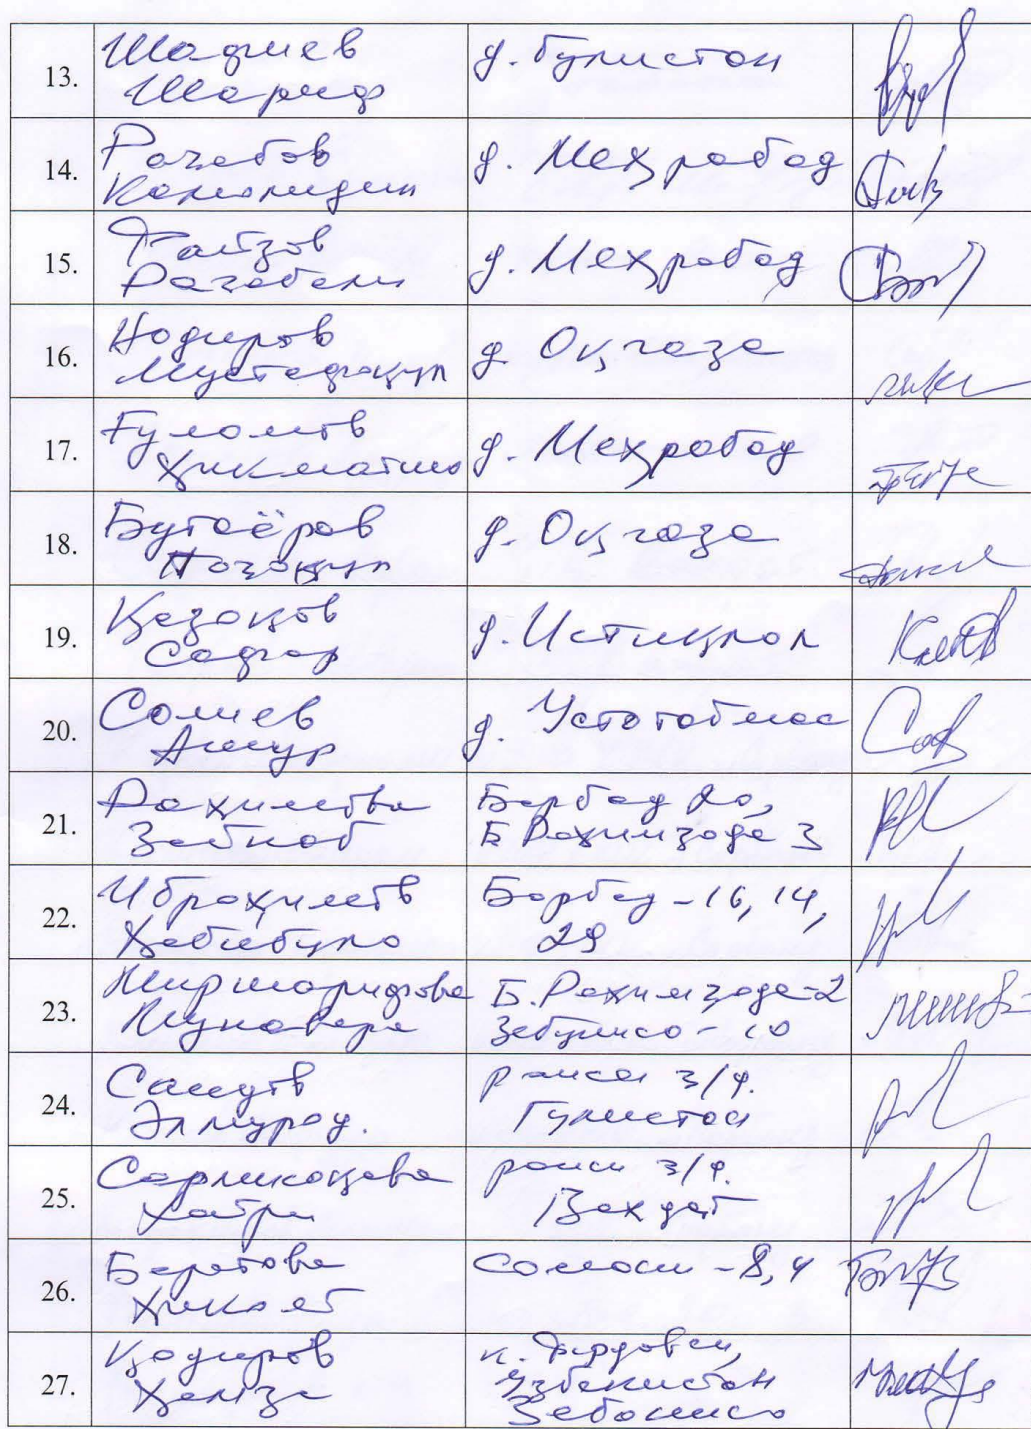 13. Шадиев Шариф д. Гулистон
14. Раҷабов Камолидин д. Меҳробод
15. Файзов Раҷабали д. Меҳробод
16. Нодиров Мустафоқул д. Оқгаза
17. Ғуломов Ҳикматшо д. Меҳробод
18. Бутаёров Назоқул д. Оқгаза
19. Қазоқов Сафар д. Истиқлол
20. Солиев Ашур д.
21. Раҳимова Зайнаб Борбад 20, Б Раҳимзода 3
22. Иброҳимов Ҳабибуло Борбад - 16, 14, 29
23. Миршарифова Мунавара Б. Раҳимзода - 2 Зебунисо - 10
24. Саидов Элмурод. раиси з/ф. Гулистон
25. Сарликоқова Хайри раиси з/ф. Ваҳдат
26. Баротова Ҳикоят Сомони - 8, 4
27. Қодиров Ҳамза к. Фирдовси, Ӯзбекистон Зебонисо